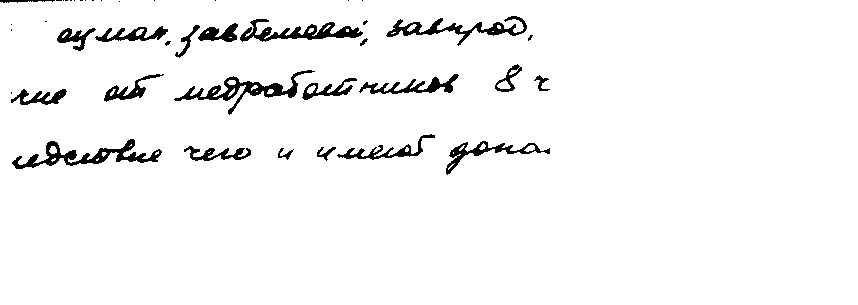 завбелевой, завпрод,
чие от медработников 8 ч
едствие чего и имеют допо